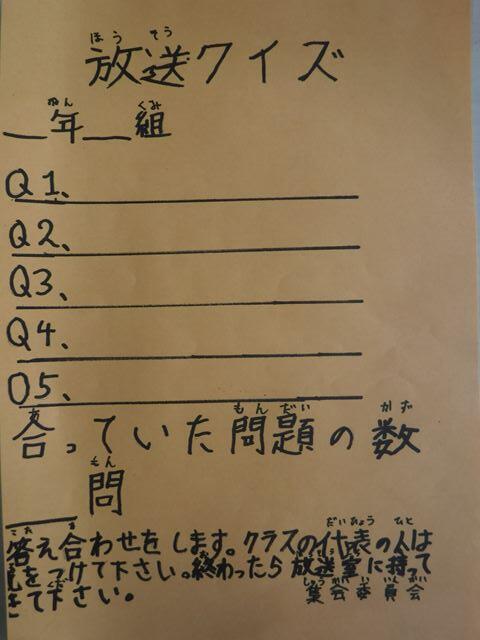 ほう そう
放送クイズ
ねん くみ
__年__組
Q1、
Q2、
Q3、
Q4、
Q5、
あ もんだい かず
合っていた問題の数
もん
____問
こた あ だいひょう ひと
答え合わせをします。クラスの代表の人は
をつけて下さい。終わったら放送室に持って
きて下さい。
しゅうかいいいんかい
集会委員会